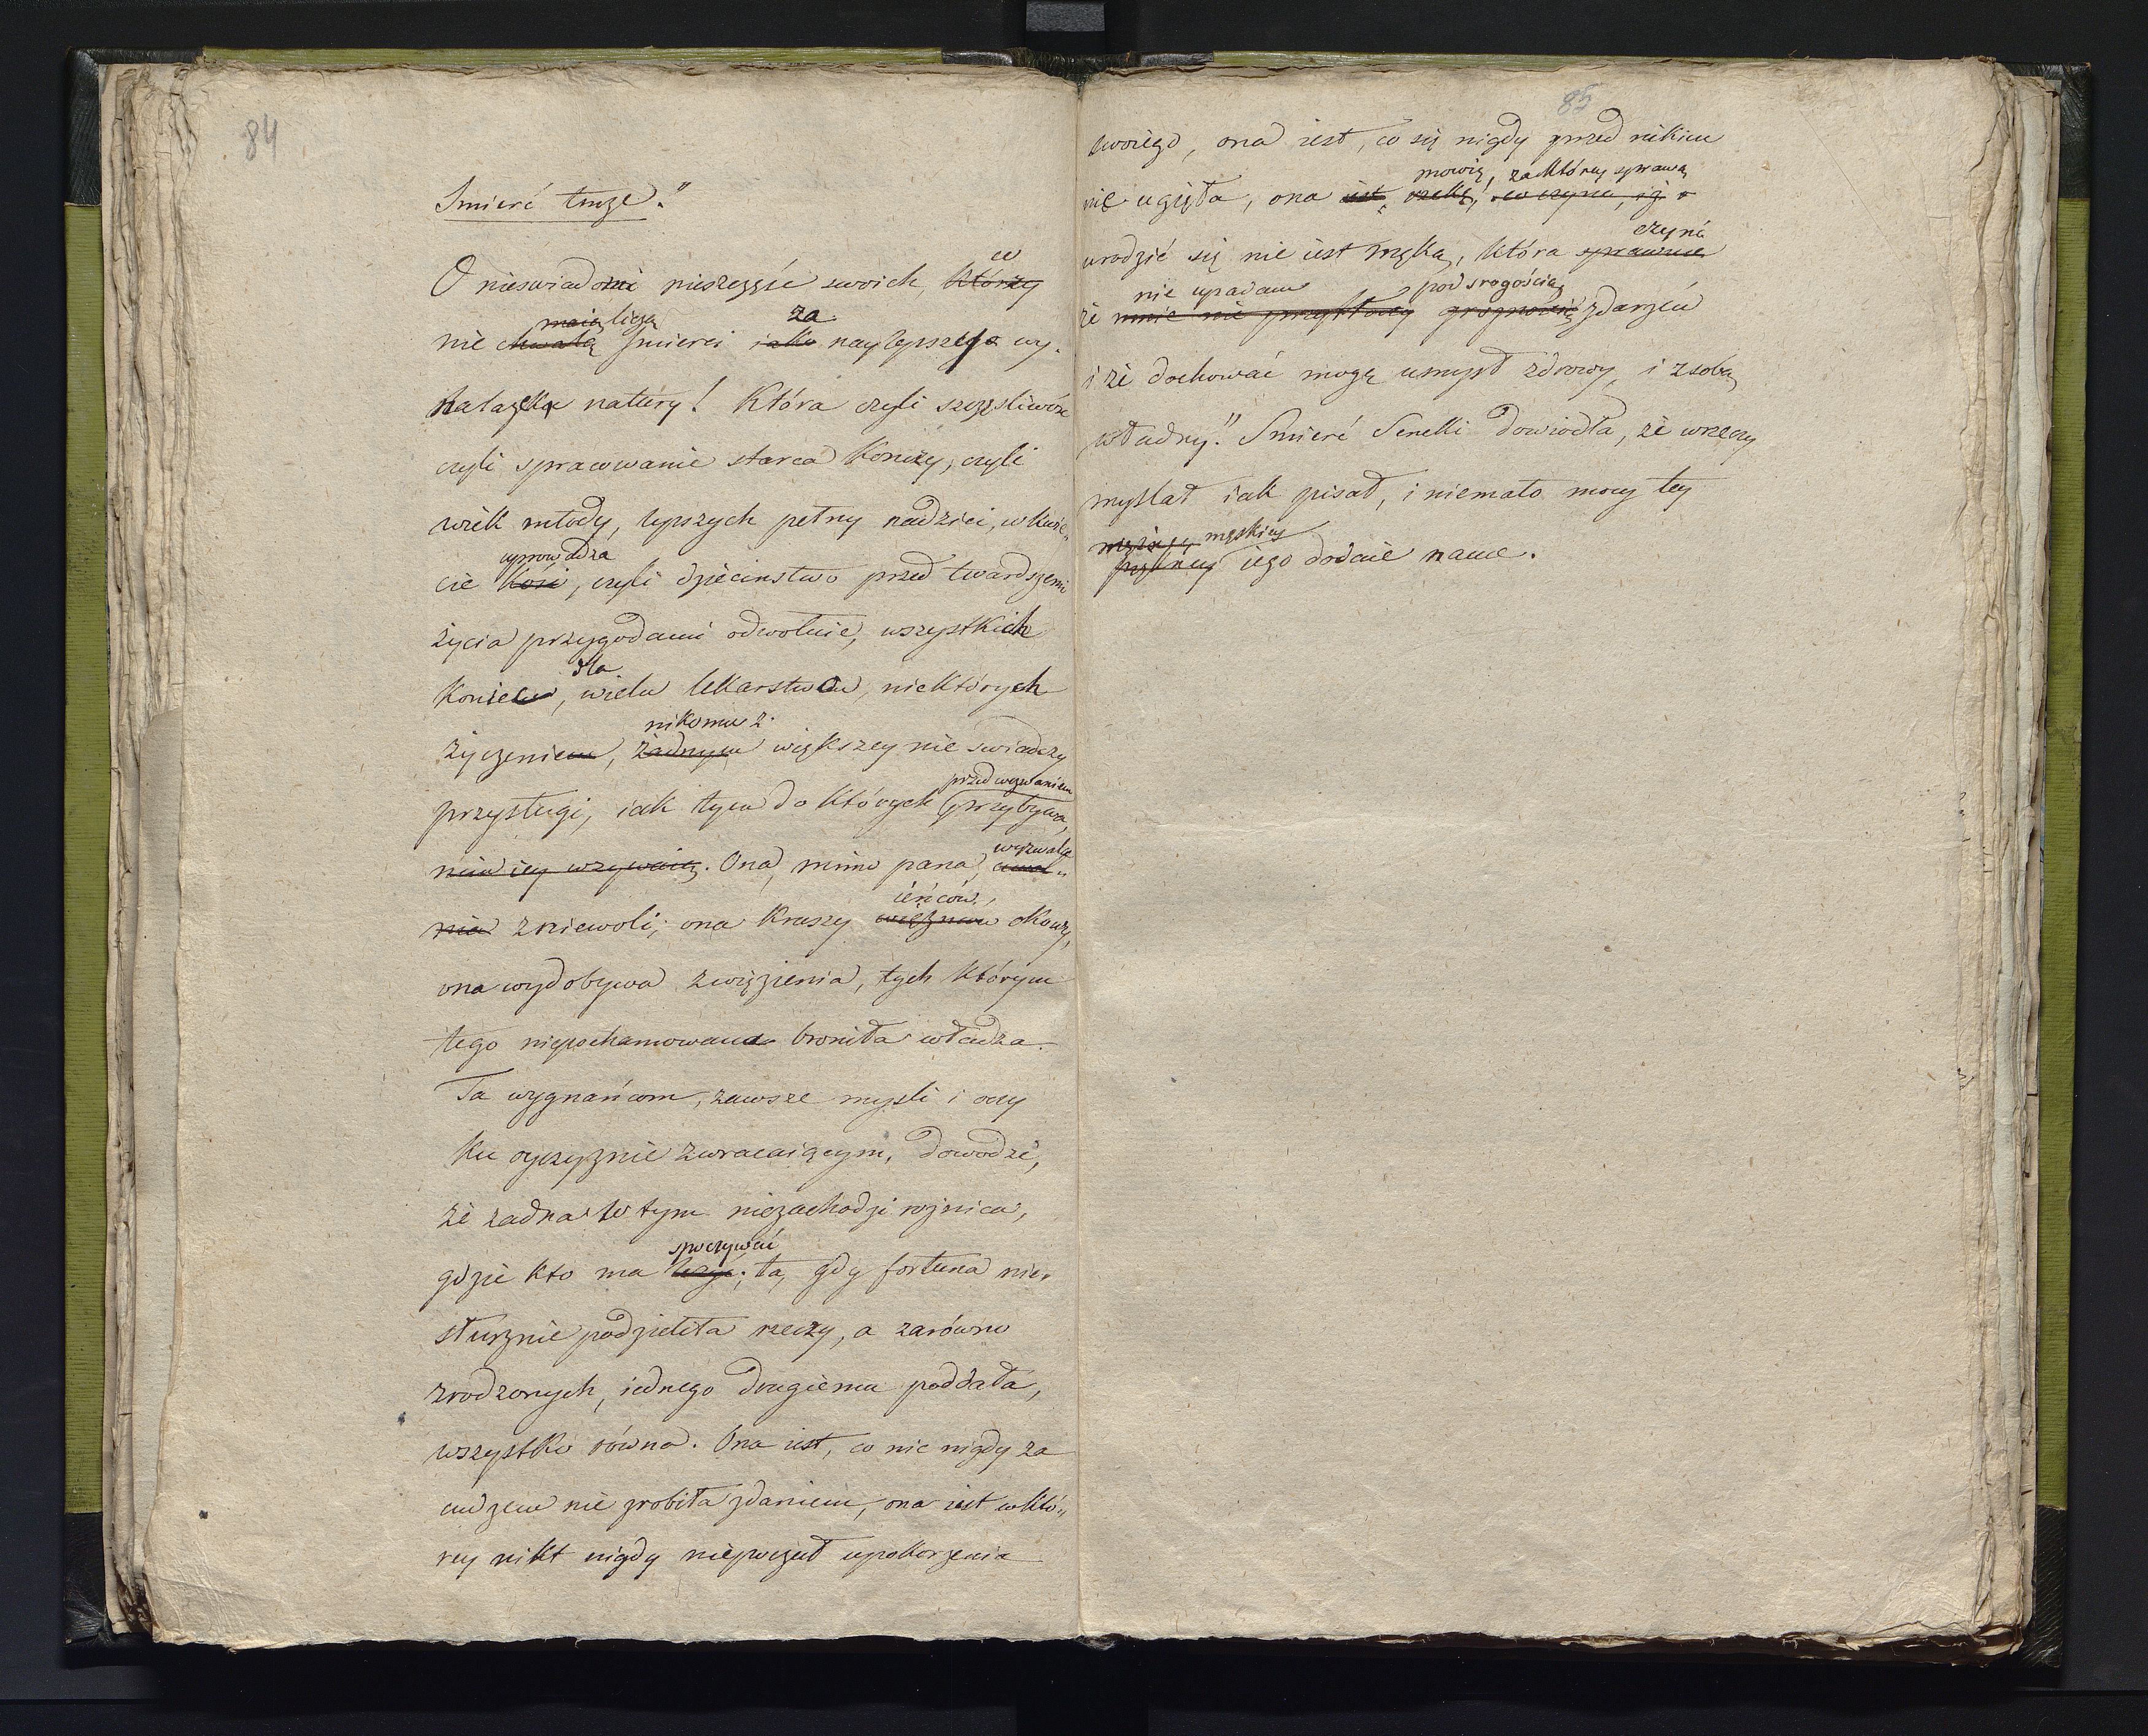 84
Smierć tuże."
O nieswiadomi nieszczęść swoich, którzy
co
nie chwalą śmierci iako naylepszego wy-
maią liczą za
nalazku natury! Która czyli szczęśliwość
czyli spracowanie starca kończy, czyli
wiek młody, lepszych pełny nadziei, w kwie„
uprowadza
cie kosi, czyli dzieciństwo przed twardszemi
życia przygodami odwołuie, wszystkich
dla
koniec, wielu lekarstwem, niektórych
nikomu z.
życzeniem, żadnym większey nie swiadczy
przed wezwaniem
przysługi, iak tym do których przybywa,
nim iey wzywaią. Ona, mimo pana, uwal„
wyzwala
nia z niewoli; ona kruszy więzniow okowy,
ieńców
ona wydobywa z więzienia, tych którym
tego niepohamowana broniła władza.
Ta wygnańcom, zawsze mysli i oczy
ku oyczyznie zwracaiącym, dowodzi,
że żadna w tym niezachodzi rożnica,
spoczywać
gdzie kto ma leżyć; ta, gdy fortuna nie„
słusznie podzieliła rzeczy, a zarówno
zrodzonych, iednego drugiemu poddała,
wszystko równa. Ona iest, co nic nigdy za
cudzem nie zrobiła zdaniem, ona iest w któ„
rey nikt nigdy niepoczuł upokorzenia
85
swoiego, ona iest, co się nigdy przed nikim
mowię, za którey sprawą
nie ugięła, ona iest, rzekę, co czyni, iż
urodzić się nie iest męką, która sprawuie
czyni
nie upadam pod srogością
że mnie nie zdarzeń
i że dochować mogę umysł zdrowy, i z sobą
władny." Smierć Seneki dowiodła, że w rzeczy
myslał iak pisał, i niemało mocy tey
męskiey
iego dodaie nauce.